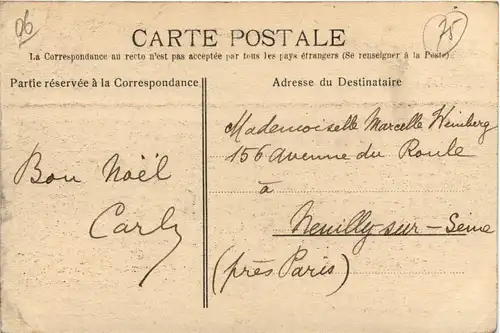 06
75
CARTE POSTALE
La Correspondance au recto n'est pas acceptée par tous les pays étrangers (Se renseigner à la Poste)
Partie réservée à la Correspondance
Adresse du Destinataire
Bon Noël
Carly
Mademoiselle Marcelle Weinberg
156 Avenue du Roule
à
Neuilly-sur-Seine
(près Paris)